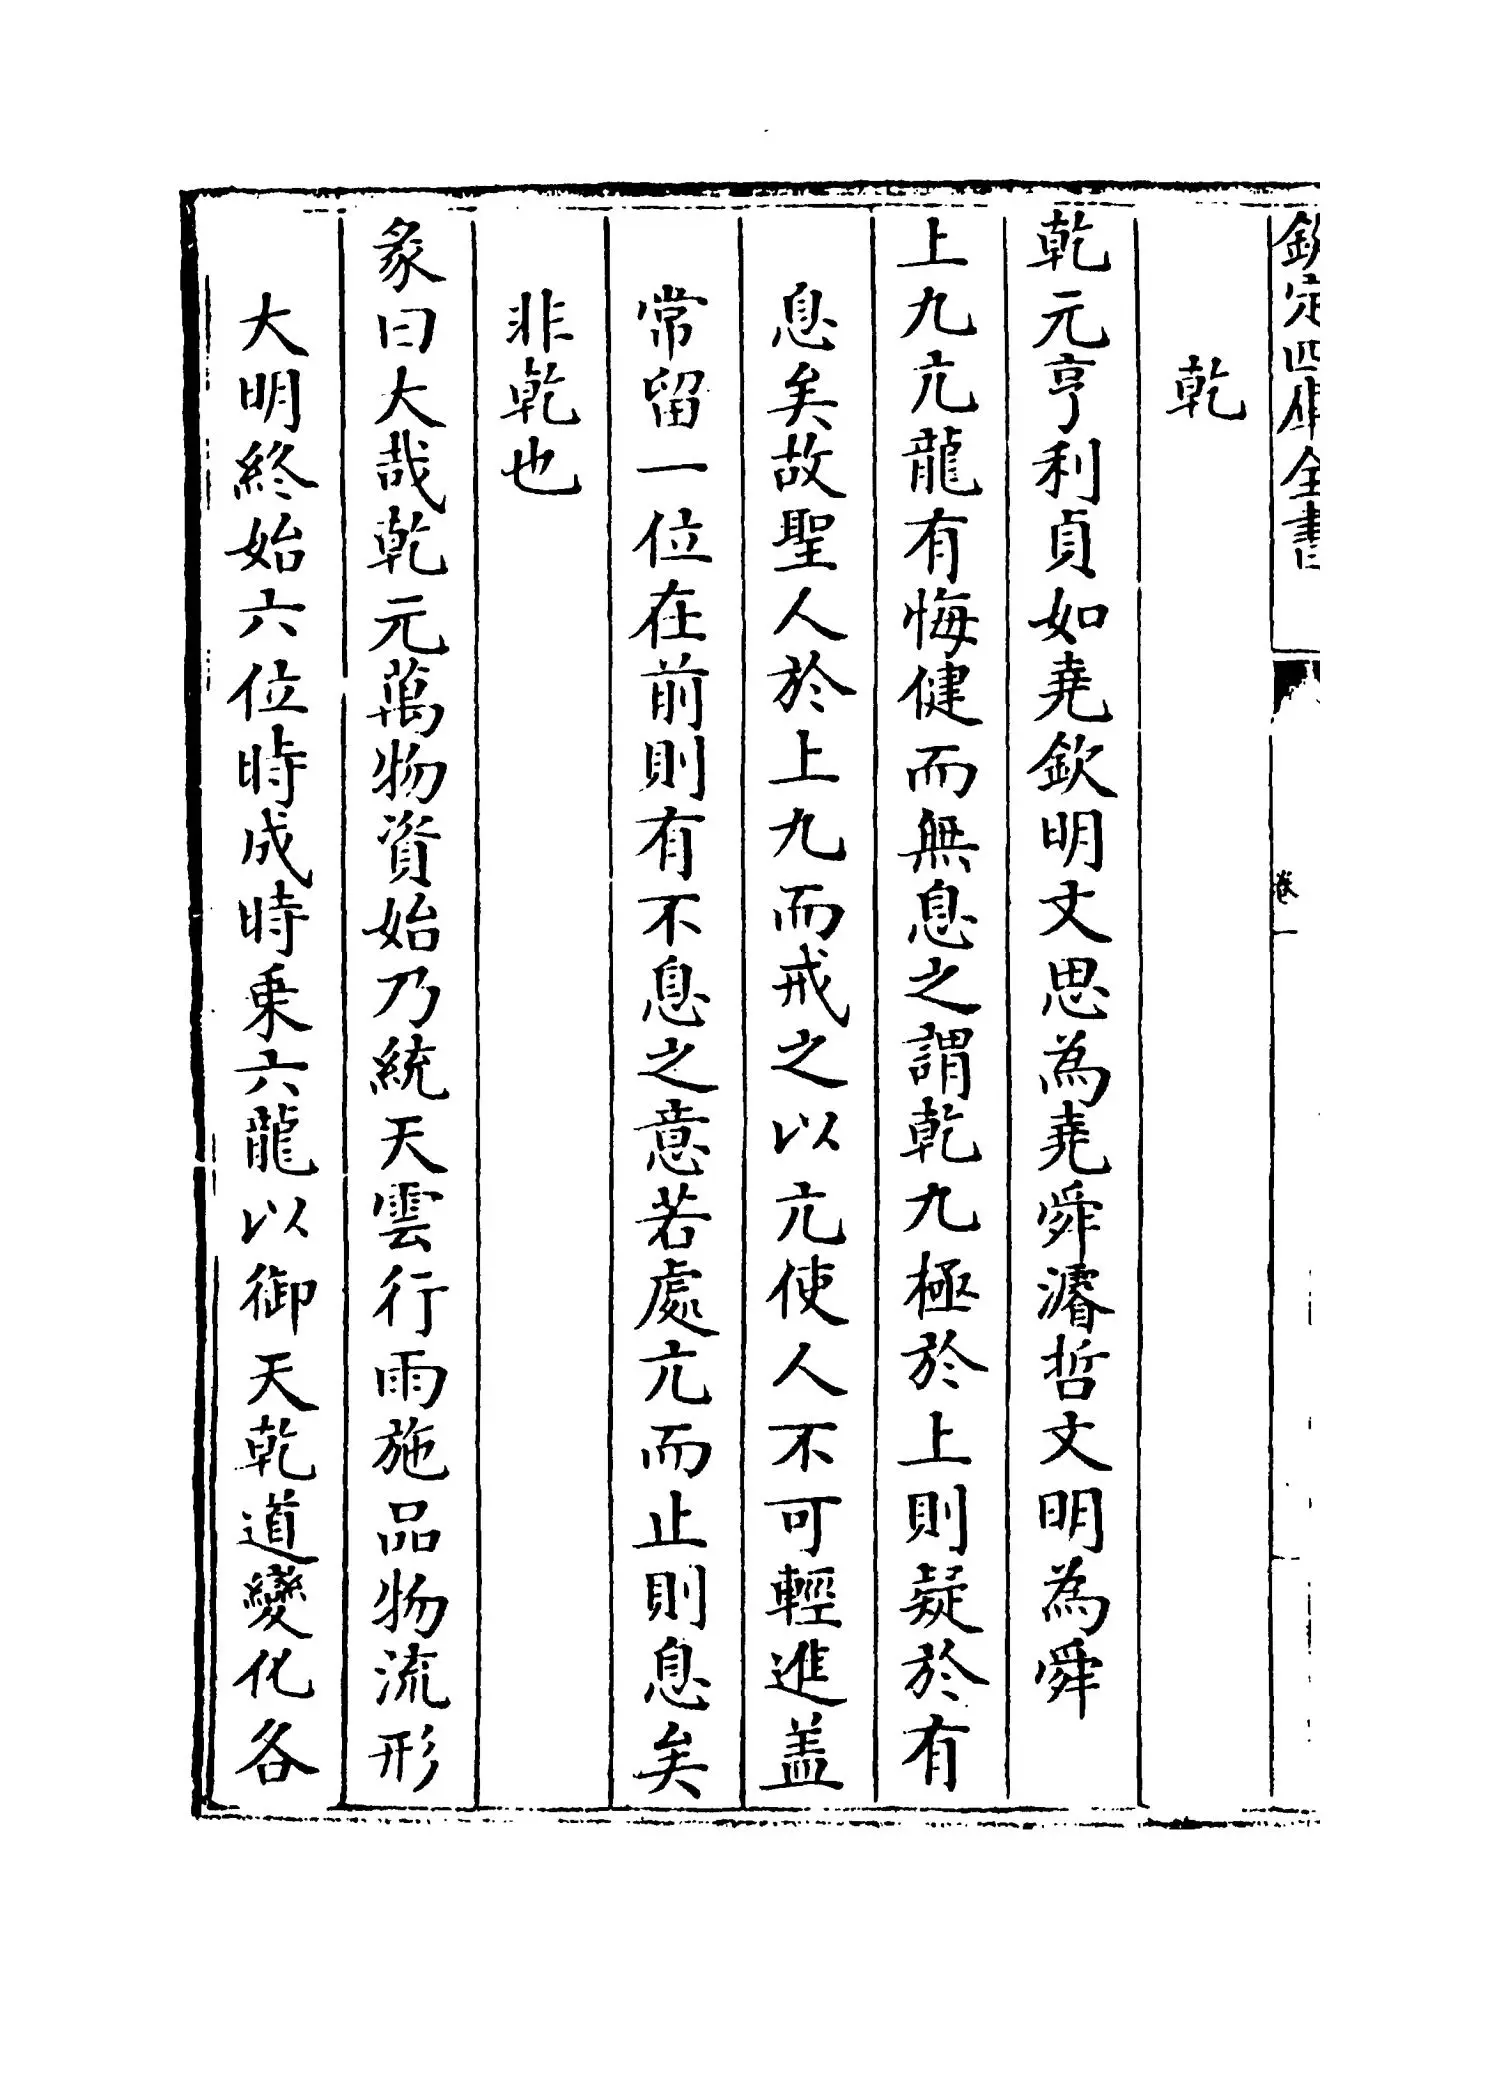 欽定四庫全書
卷一
乾
乾元亨利貞如堯欽明文思為堯舜濬哲文明為舜
上九亢龍有悔健而無息之謂乾九極於上則疑於有
息矣故聖人於上九而戒之以亢使人不可輕進盖
常留一位在前則有不息之意若處亢而止則息矣
非乾也
彖曰大哉乾元萬物資始乃統天雲行雨施品物流形
大明終始六位時成時乗六龍以御天乾道變化各